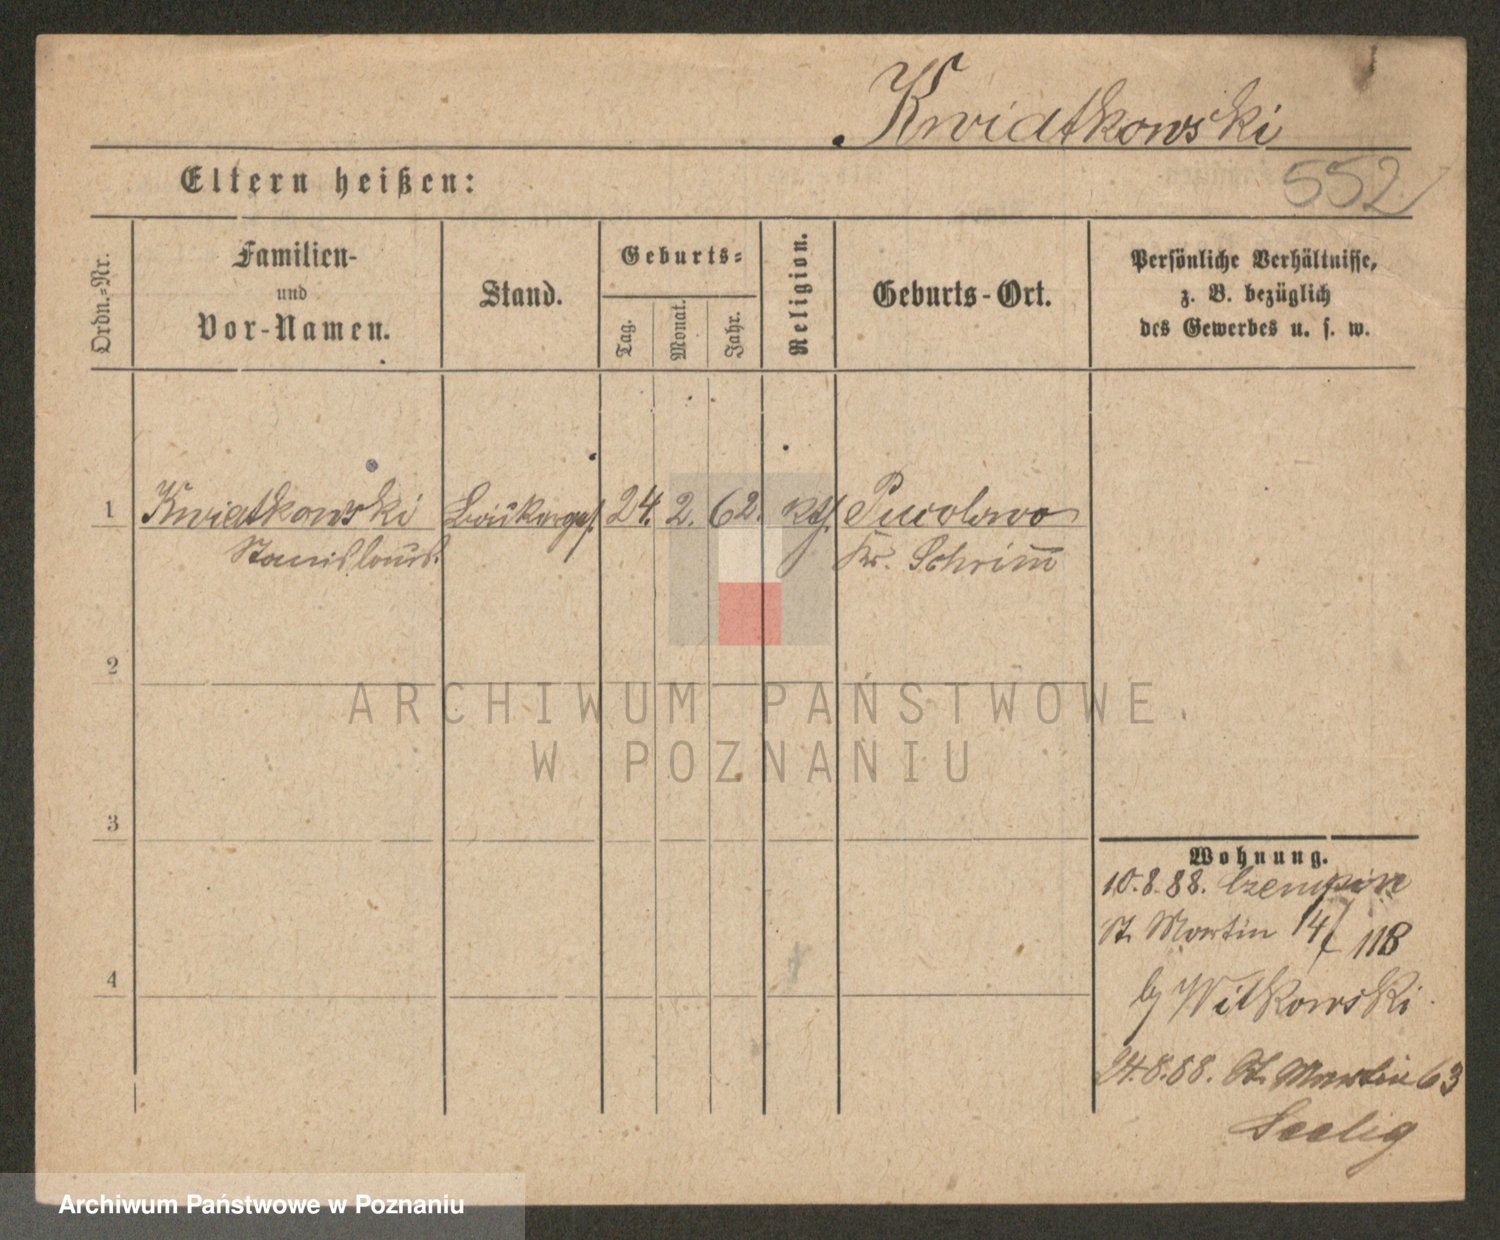 Kwiatkowski
Eltern heißen:
552
Ordn.=Nr.
Familien-
und
Vor-Namen.
Stand.
Geburts=
Tag.
Monat.
Jahr.
Religion.
Geburts-Ort.
Persönliche Verhältnisse,
z. B. bezüglich
des Gewerbes u. s. w.
1 Kwiatkowski 24. 2. 62. kth.
Stanislaus. Kr. Schrimm
2
3
4
Wohnung.
10.8.88. Czempin
St. Martin 14/ 118
by Witkowski
24.8.88. St. Martin 63
Seelig
ARCHIWUM PAŃSTWOWE
W POZNANIU
Archiwum Państwowe w Poznaniu